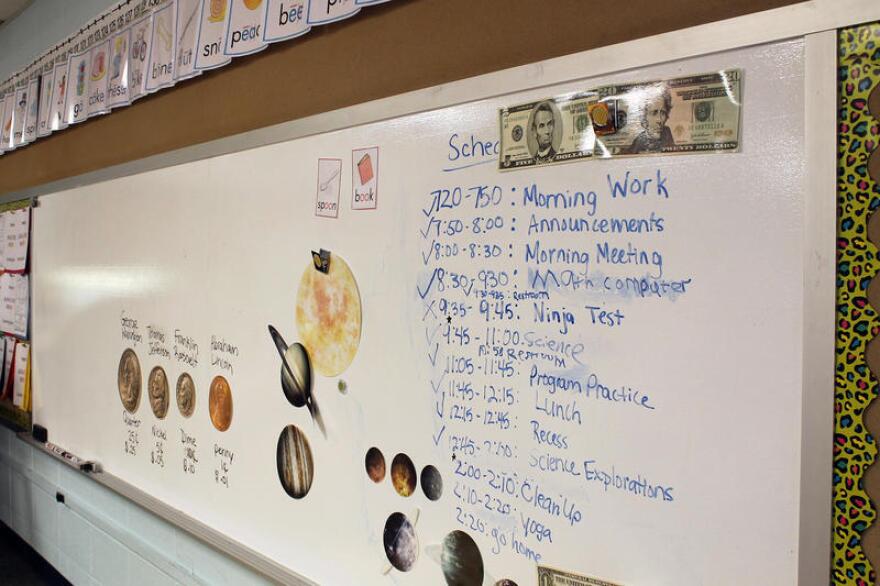 bee
peac
sn
bine
cake
spoon
book
20
FIVE DOLLARS
TWENTY DOLLARS
Sche
7:20-7:50: Morning Work
7:50-8:00: Announcements
8:00-8:30: Morning Meeting
8:30-9:30: Math computer
Restroom
9:35-9:45: Ninja Test
9:45-11:00: Science
Restroom
11:05-11:45: Program Practice
11:45-12:15: Lunch
12:15-12:45: Recess
Science Explorations
2:00-2:10: Clean Up
2:10-2:20: Yoga
2:20: go home
George
Thomas Jefferson
Franklin Roosevelt
Abraham Lincoln
Quarter 25¢ $.25
Nickel 5¢ $.05
Dime $.10
penny 1¢ $.01